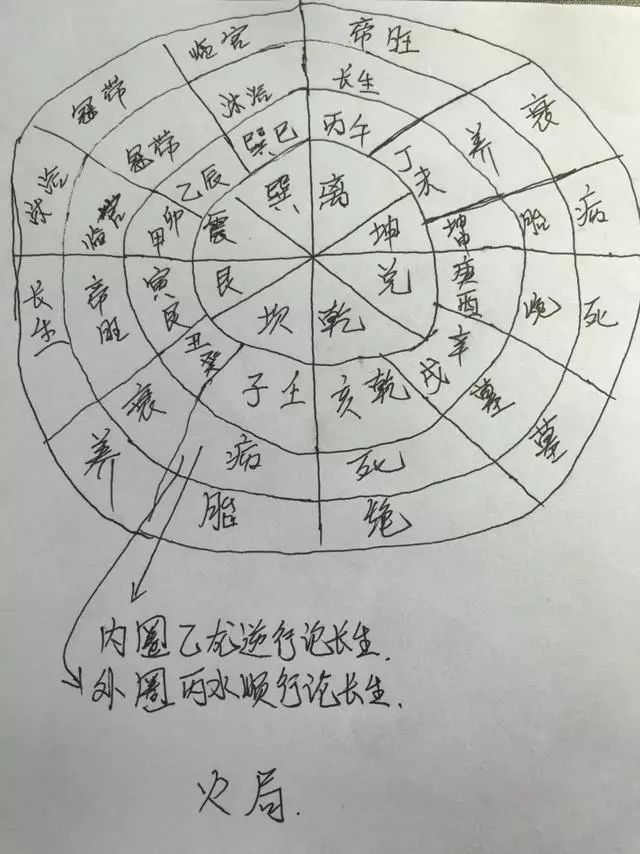 帝旺
衰
病
死
墓
绝
胎
养
长生
沐浴
冠带
临官
长生
养
胎
绝
墓
死
病
衰
帝旺
临官
冠带
沐浴
丙午
丁未
坤申
庚酉
辛戌
亥乾
子壬
丑癸
寅艮
甲卯
乙辰
巽巳
离
坤
兑
乾
坎
艮
震
巽
内圈乙龙逆行论长生.
外圈丙水顺行论长生.
火局.